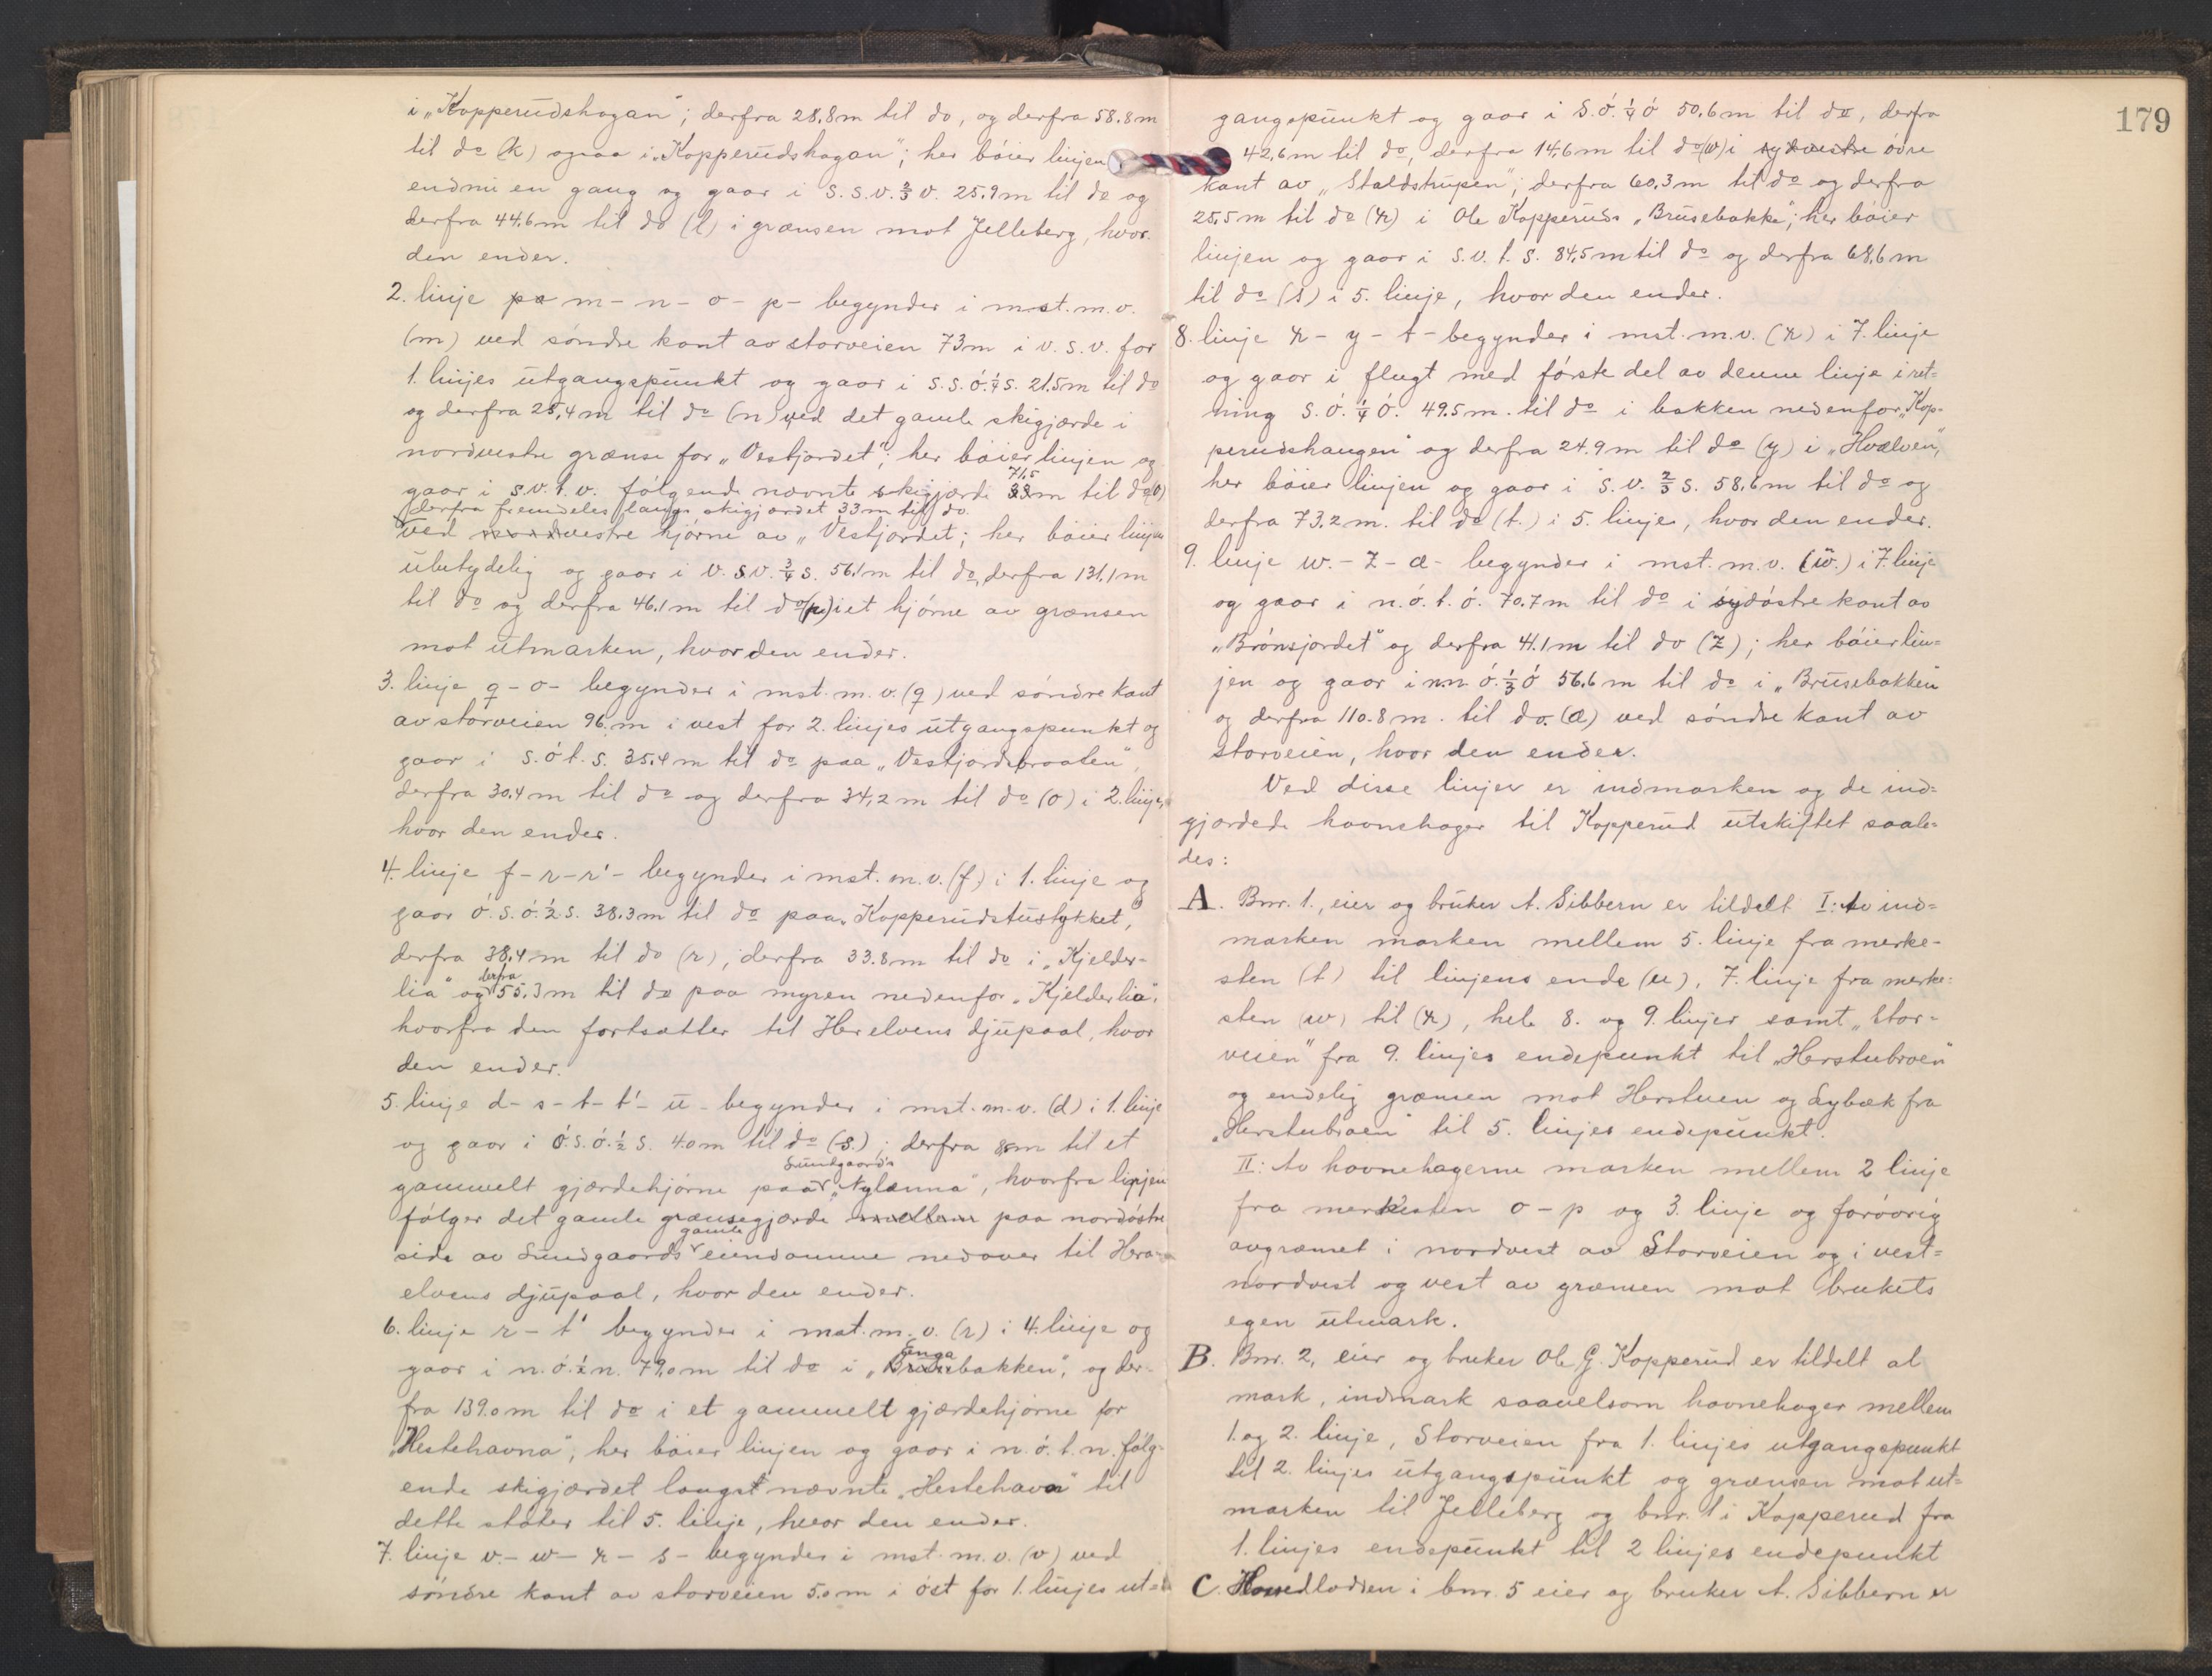 i „Kopperudshagan"; derfra 28.8m til do, og derfra 58.8m
til do (k) ogsaa i „Kopperudshagan"; her bøier linjen
endnu en gang og gaar i S.S.V.⅔V. 25.9m til do og
derfra 44.6m til do (l) i grænsen mot Jelleberg, hvor
den ender.
2. linje m-n-o-p- begynder i mst. m.v.
(m) ved søndre kant av storveien 73m i v.s.v. for
1. linjes utgangspunkt og gaar i S.S.Ø.¼S. 21.5m til do
og derfra 25.4m til do (n) ved det gamle skigjærde i
nordvestre grænse for „Vestjordet"; her bøier linjen og
gaar i s.v.t.v. følgende nævnte skigjærde 71,5 m til do (o)
derfra fremdeles langs skigjærdet 33m til do.
ved vestre hjørne av „Vestjordet; her bøier linjen
ubetydelig og gaar i V.S.V.¾S. 56.1m til do, derfra 131,1m
til do og derfra 46.1m til do (p) i et hjørne av grænsen
mot utmarken, hvor den ender.
3. linje q-o- begynder i mst. m.v. (q) ved søndre kant
av storveien 96.m i vest for 2. linjes utgangspunkt og
gaar i S.Ø t. S. 35.4m til do paa „Vestjordsbraaten",
derfra 30.4m til do og derfra 34,2m til do (o) i 2. linje,
hvor den ender.
4. linje f-r-r'- begynder i mst. m.v. (f.) i 1. linje og
gaar Ø.S.Ø.½S. 38.3m til do paa „Kopperudstustykket",
derfra 38.4m til do (r), derfra 33.8m til do i „Kjelder-
lia" og derfra 55.3m til do paa myren nedenfor „Kjelderlia",
hvorfra den fortsætter til Herelvens djupaal, hvor
den ender.
5. linje d-s-t-t'-u- begynder i mst. m.v. (d) i 1. linje
og gaar i Ø.S.Ø.½S. 40m til do (s); derfra 8m til et
gammelt gjærdehjørne paa Sundgaards „Nylænna", hvorfra linjen
følger det gamle grænsegjærde paa nordøstre
side av Sundgaards gamle eiendomme nedover til Hera-
elvens djupaal, hvor den ender.
6. linje r-t' begynder i mst. m.v. (r) i 4. linje og
gaar i n.ø.½n. 79,0m til do i „Engabakken", og der-
fra 139.0m til do i et gammelt gjærdehjørne for
„Hestehavna", her bøier linjen og gaar i n.ø.t.n. følg-
ende skigjærdet langst nævnte „Hestehavn" til
dette støter til 5. linje, hvor den ender.
7. linje v-w-x-s- begynder i mst. m.v. (v) ved
søndre kant av storveien 5.0m i øst for 1. linjes ut-
179
gangspunkt og gaar i S.Ø.¼Ø 50.6m til do, derfra
42.6m til do, derfra 14,6m til do (w) i sydvestre øvre
kant av „Staldstrupen"; derfra 60.3m til do og derfra
25.5m til do (x) i Ole Kopperuds „Brusebakke"; her bøier
linjen og gaar i S.V.t.S. 84,5m til do og derfra 68.6m
til do (s) i 5. linje, hvor den ender.
8. linje x-y-t- begynder i mst. m.v. (x) i 7. linje
og gaar i flugt med første del av denne linje i ret-
ning S.Ø.¼Ø. 49.5m. til do i bakken nedenfor „Kop-
perudshaugen" og derfra 24.9m til do (y) i „Hvælven",
her bøier linjen og gaar i S.V.⅔S. 58.6m til do og
derfra 73.2m. til do (t.) i 5. linje, hvor den ender.
9. linje w.-z-æ- begynder i mst. m.v. (w.) i 7. linje
og gaar i n.ø.t.ø. 70.7m til do i sydøstre kant av
„Brønsjordet" og derfra 41.1m til do (z); her bøier lin-
jen og gaar i n.n.ø.⅓ø 56.6m til do i „Brusebakken"
og derfra 110.8m. til do. (æ) ved søndre kant av
storveien, hvor den ender.
Ved disse linjer er indmarken og de ind-
gjærdede havnehager til Kopperud utskiftet saale-
des:
A. Bnr. 1., eier og bruker A. Sibbern er tildelt I: Av ind-
marken marken mellem 5. linje fra merke-
sten (t) til linjens ende (u), 7. linje fra merke-
sten (w) til (x), hele 8. og 9. linjer samt „Stor-
veien" fra 9. linjes endepunkt til „Herstubroen"
og endelig grænsen mot Herstuen og Lybæk fra
„Herstubroen" til 5. linjes endepunkt.
II: Av havnehagerne marken mellem 2 linje
fra merkesten o-p og 3. linje og forøvrig
avgrænset i nordvest av Storveien og i vest-
nordvest og vest av grænsen mot brukets
egen utmark.
B. Bnr. 2, eier og bruker Ole G. Kopperud er tildelt al
mark, indmark saavelsom havnehager mellem
1. og 2. linje, Storveien fra 1. linjes utgangspunkt
til 2. linjes utgangspunkt og grænsen mot ut-
marken til Jelleberg og bnr. 1 i Kopperud fra
1. linjes endepunkt til 2 linjes endepunkt
C. Hovedlodden i bnr. 5 eier og bruker A. Sibbern er